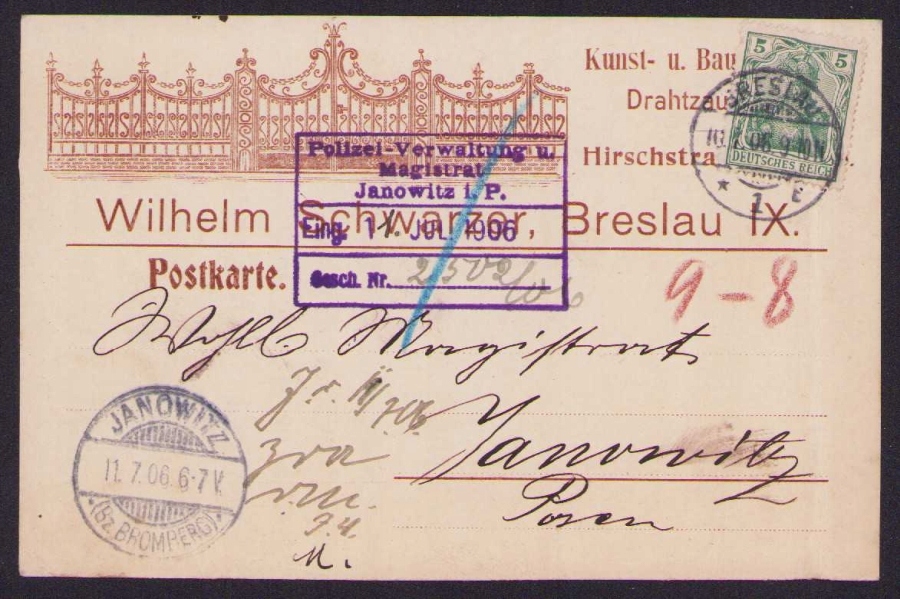 Kunst- u. Bau
Drahtzau
Hirschstra
Wilhelm Schwarzer, Breslau IX.
Postkarte.
5
DEUTSCHES REICH
BRESLAU
1
Polizei-Verwaltung u.
Magistrat
Janowitz i. P.
Eing. 11. JUL. 1906
Gesch. Nr. 2502/06
9-8
Wohll Magistrat
Janowitz
Posen
JANOWITZ
11.7.06.6-7V.
(Bz. BROMBERG)
M.